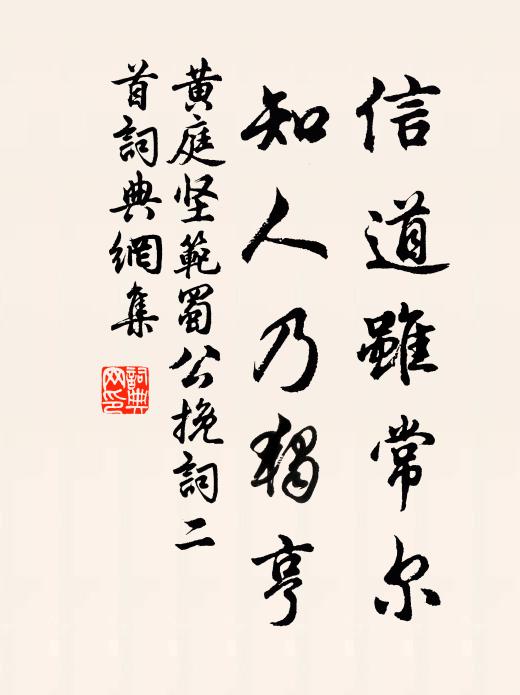 信道雖常尔
知人乃獨亨
黄庭坚範蜀公挽詞二
首詞典網集
詞典网印